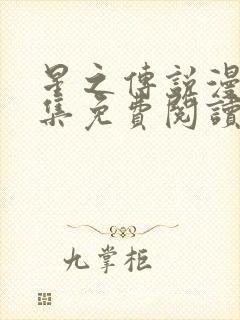 星之傳說漫
集免費閱讀
九掌柜